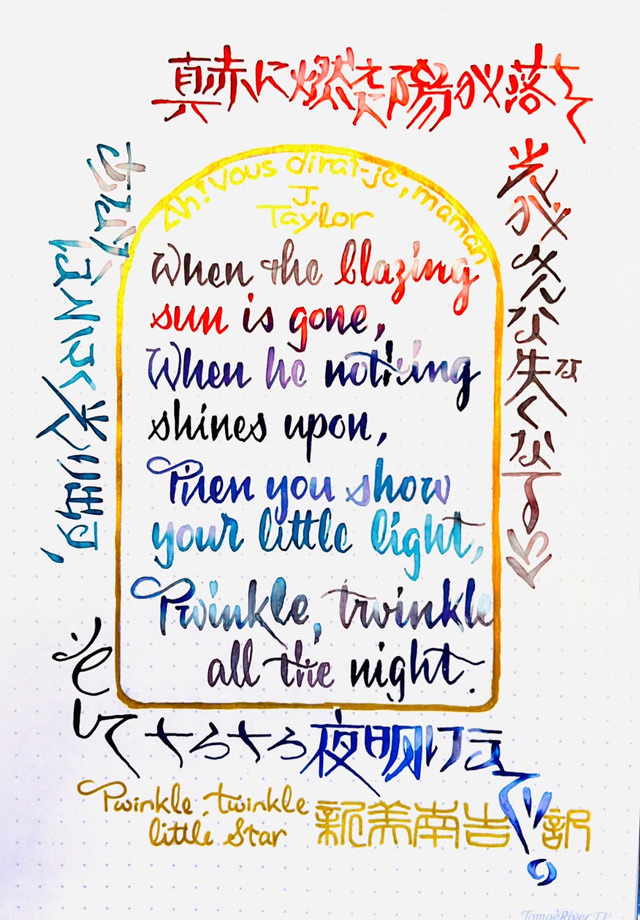 真赤に燃えた陽が落ちて
Ah! Vous dirai-je, maman
J.
Taylor
When the blazing
sun is gone,
When he nothing
shines upon,
Then you show
your little light,
Twinkle, twinkle
all the night.
光がみんな失くな
な
光り出
そしてきらきら夜明けまで。
Twinkle, twinkle
little star
新美南吉 訳
TomoeRiver FP